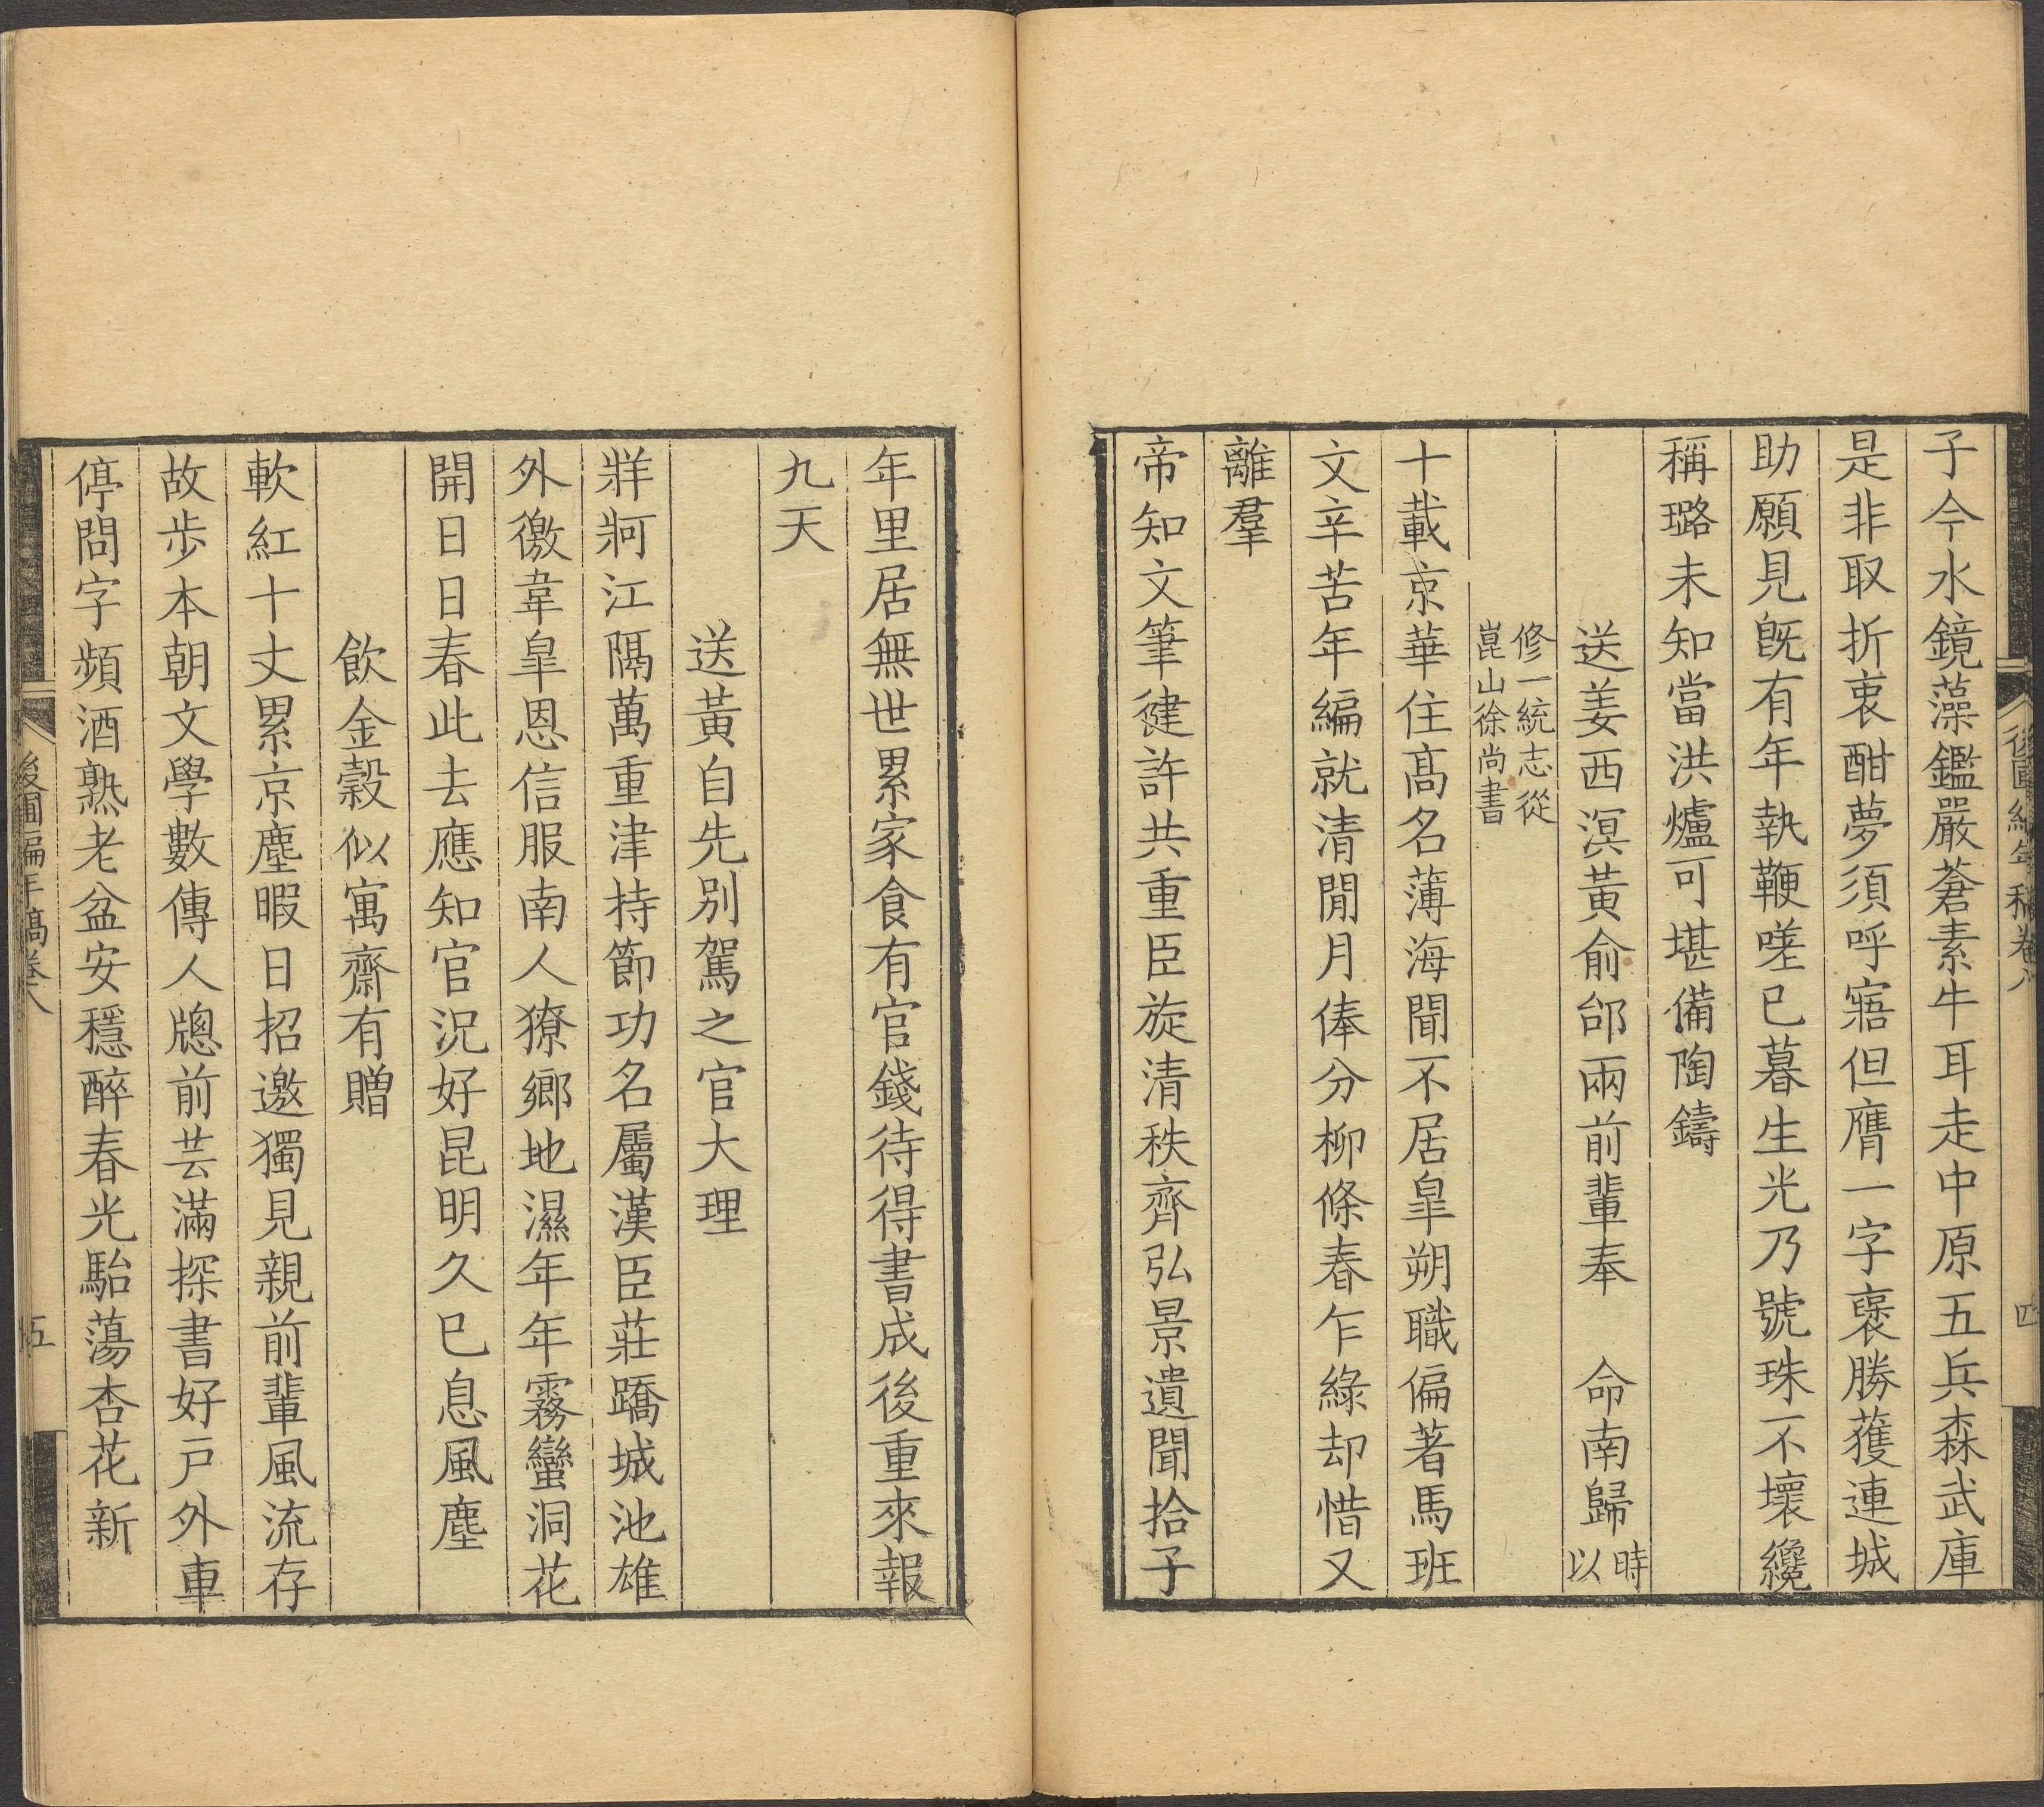 子今水鏡藻鑑嚴蒼素牛耳走中原五兵森武庫
是非取折衷酣夢須呼寤但膺一字褒勝獲連城
助願見旣有年執鞭嗟已暮生光乃號珠不壞纔
稱璐未知當洪爐可堪備陶鑄
送姜西溟黃俞邰兩前輩奉　命南歸時以
修一統志從
崑山徐尚書
十載京華住高名薄海聞不居皐朔職偏著馬班
文辛苦年編就清閒月俸分柳條春乍綠却惜又
離羣
帝知文筆健許共重臣旋清秩齊弘景遺聞拾子
年里居無世累家食有官錢待得書成後重來報
九天
送黃自先別駕之官大理
牂牁江隔萬重津持節功名屬漢臣莊蹻城池雄
外徼韋皐恩信服南人獠鄉地濕年年霧蠻洞花
開日日春此去應知官況好昆明久已息風塵
飲金穀似寓齋有贈
軟紅十丈累京塵暇日招邀獨見親前輩風流存
故步本朝文學數傳人牕前芸滿探書好戸外車
停問字頻酒熟老盆安穩醉春光駘蕩杏花新
後圃編年稿卷八
五